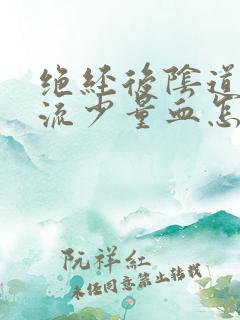 绝经後陰道
流少量血怎
阮祥紅
未经同意禁止转载